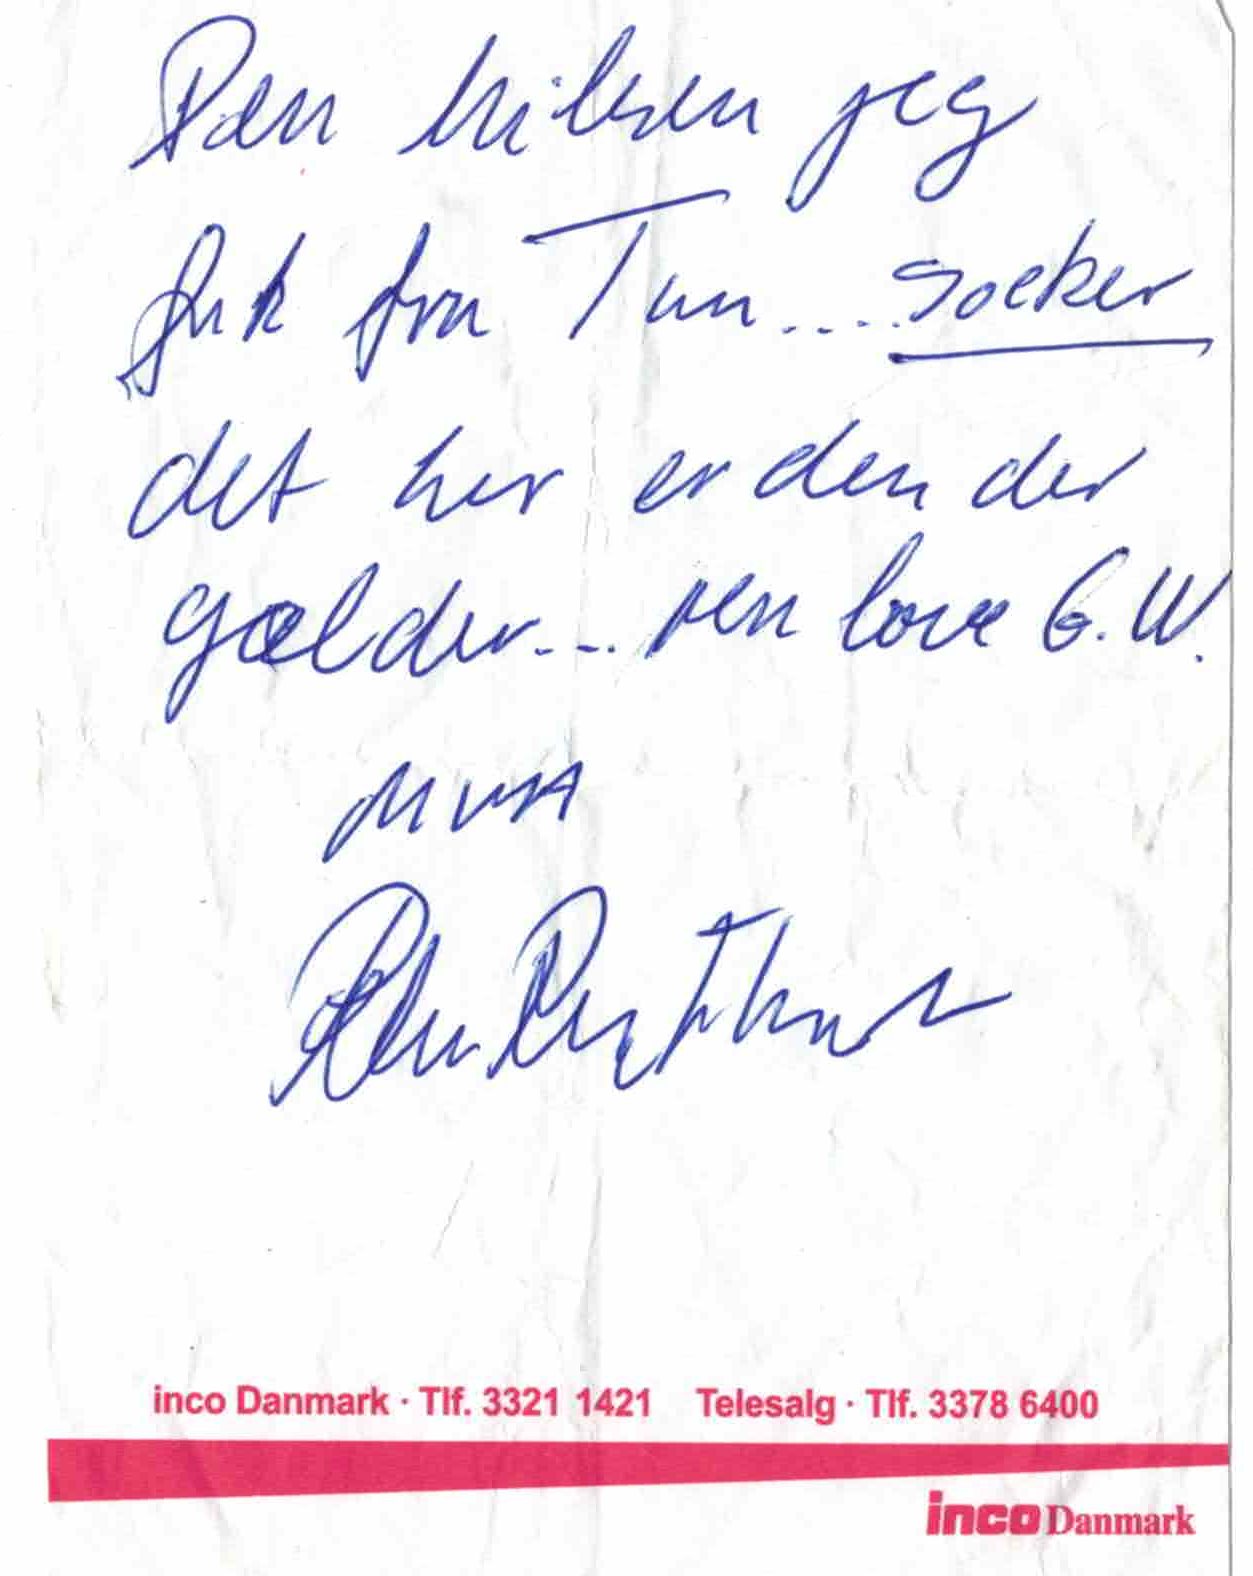 Den hilsen jeg
fik fra Tun.... socker
det her er den der
gælder... ren love G.W.
inco Danmark · Tlf. 3321 1421 Telesalg · Tlf. 3378 6400
inco Danmark